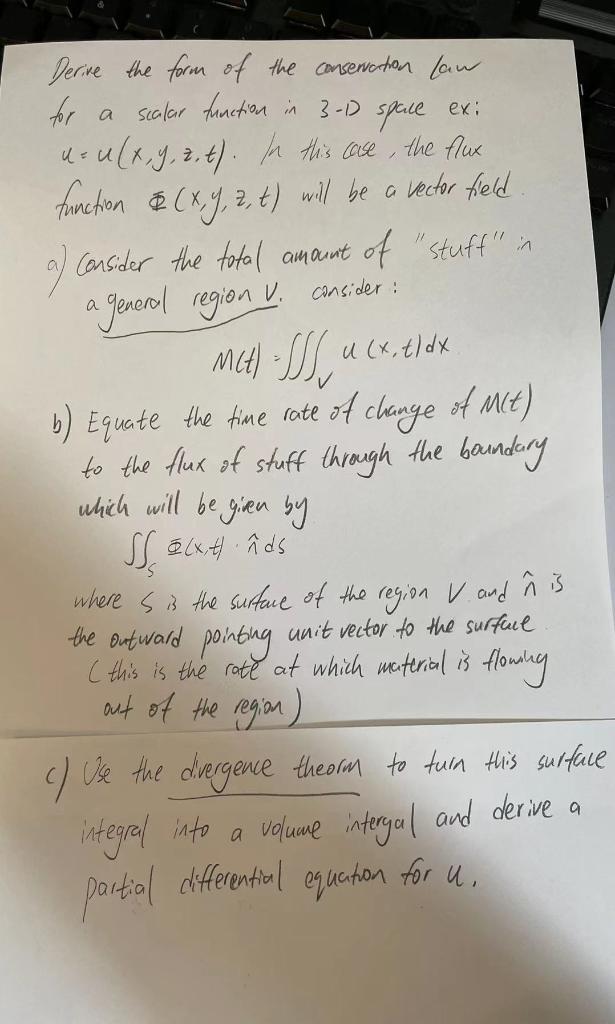 Derive the form of the conservation law
for a scalar function in 3-D space ex:
u = u(x,y,z,t). In this case, the flux
function Φ(x,y,z,t) will be a vector field.
a) Consider the total amount of "stuff" in
a general region V. consider:
M(t) = ∭_V u(x,t)dx
b) Equate the time rate of change of M(t)
to the flux of stuff through the boundary
which will be given by
∬_S Φ(x,t) · n̂ ds
where S is the surface of the region V and n̂ is
the outward pointing unit vector to the surface
(this is the rate at which material is flowing
out of the region)
c) Use the divergence theorm to turn this surface
integral into a volume intergal and derive a
partial differential equation for u.